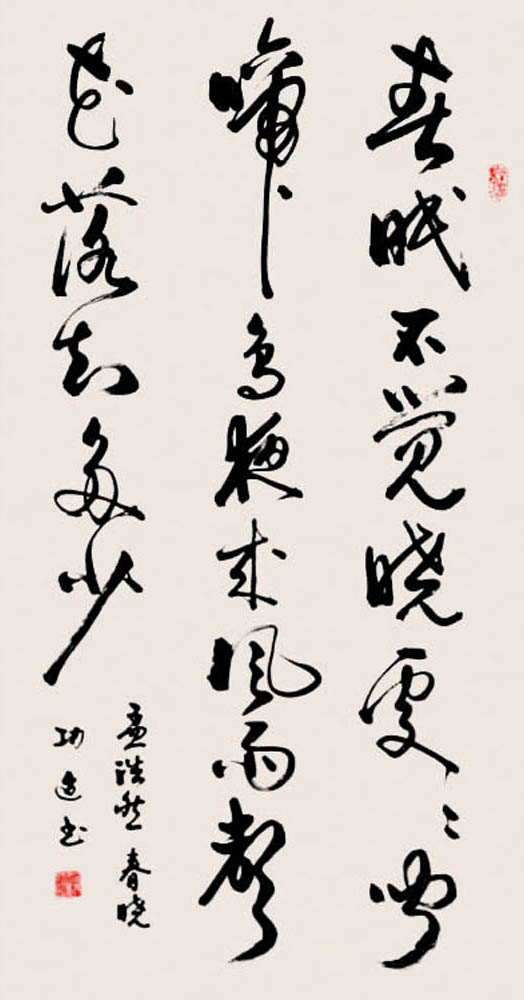 春眠不觉晓处々闻
啼鸟夜来风雨聲
花落知多少
孟浩然 春晓
功 书